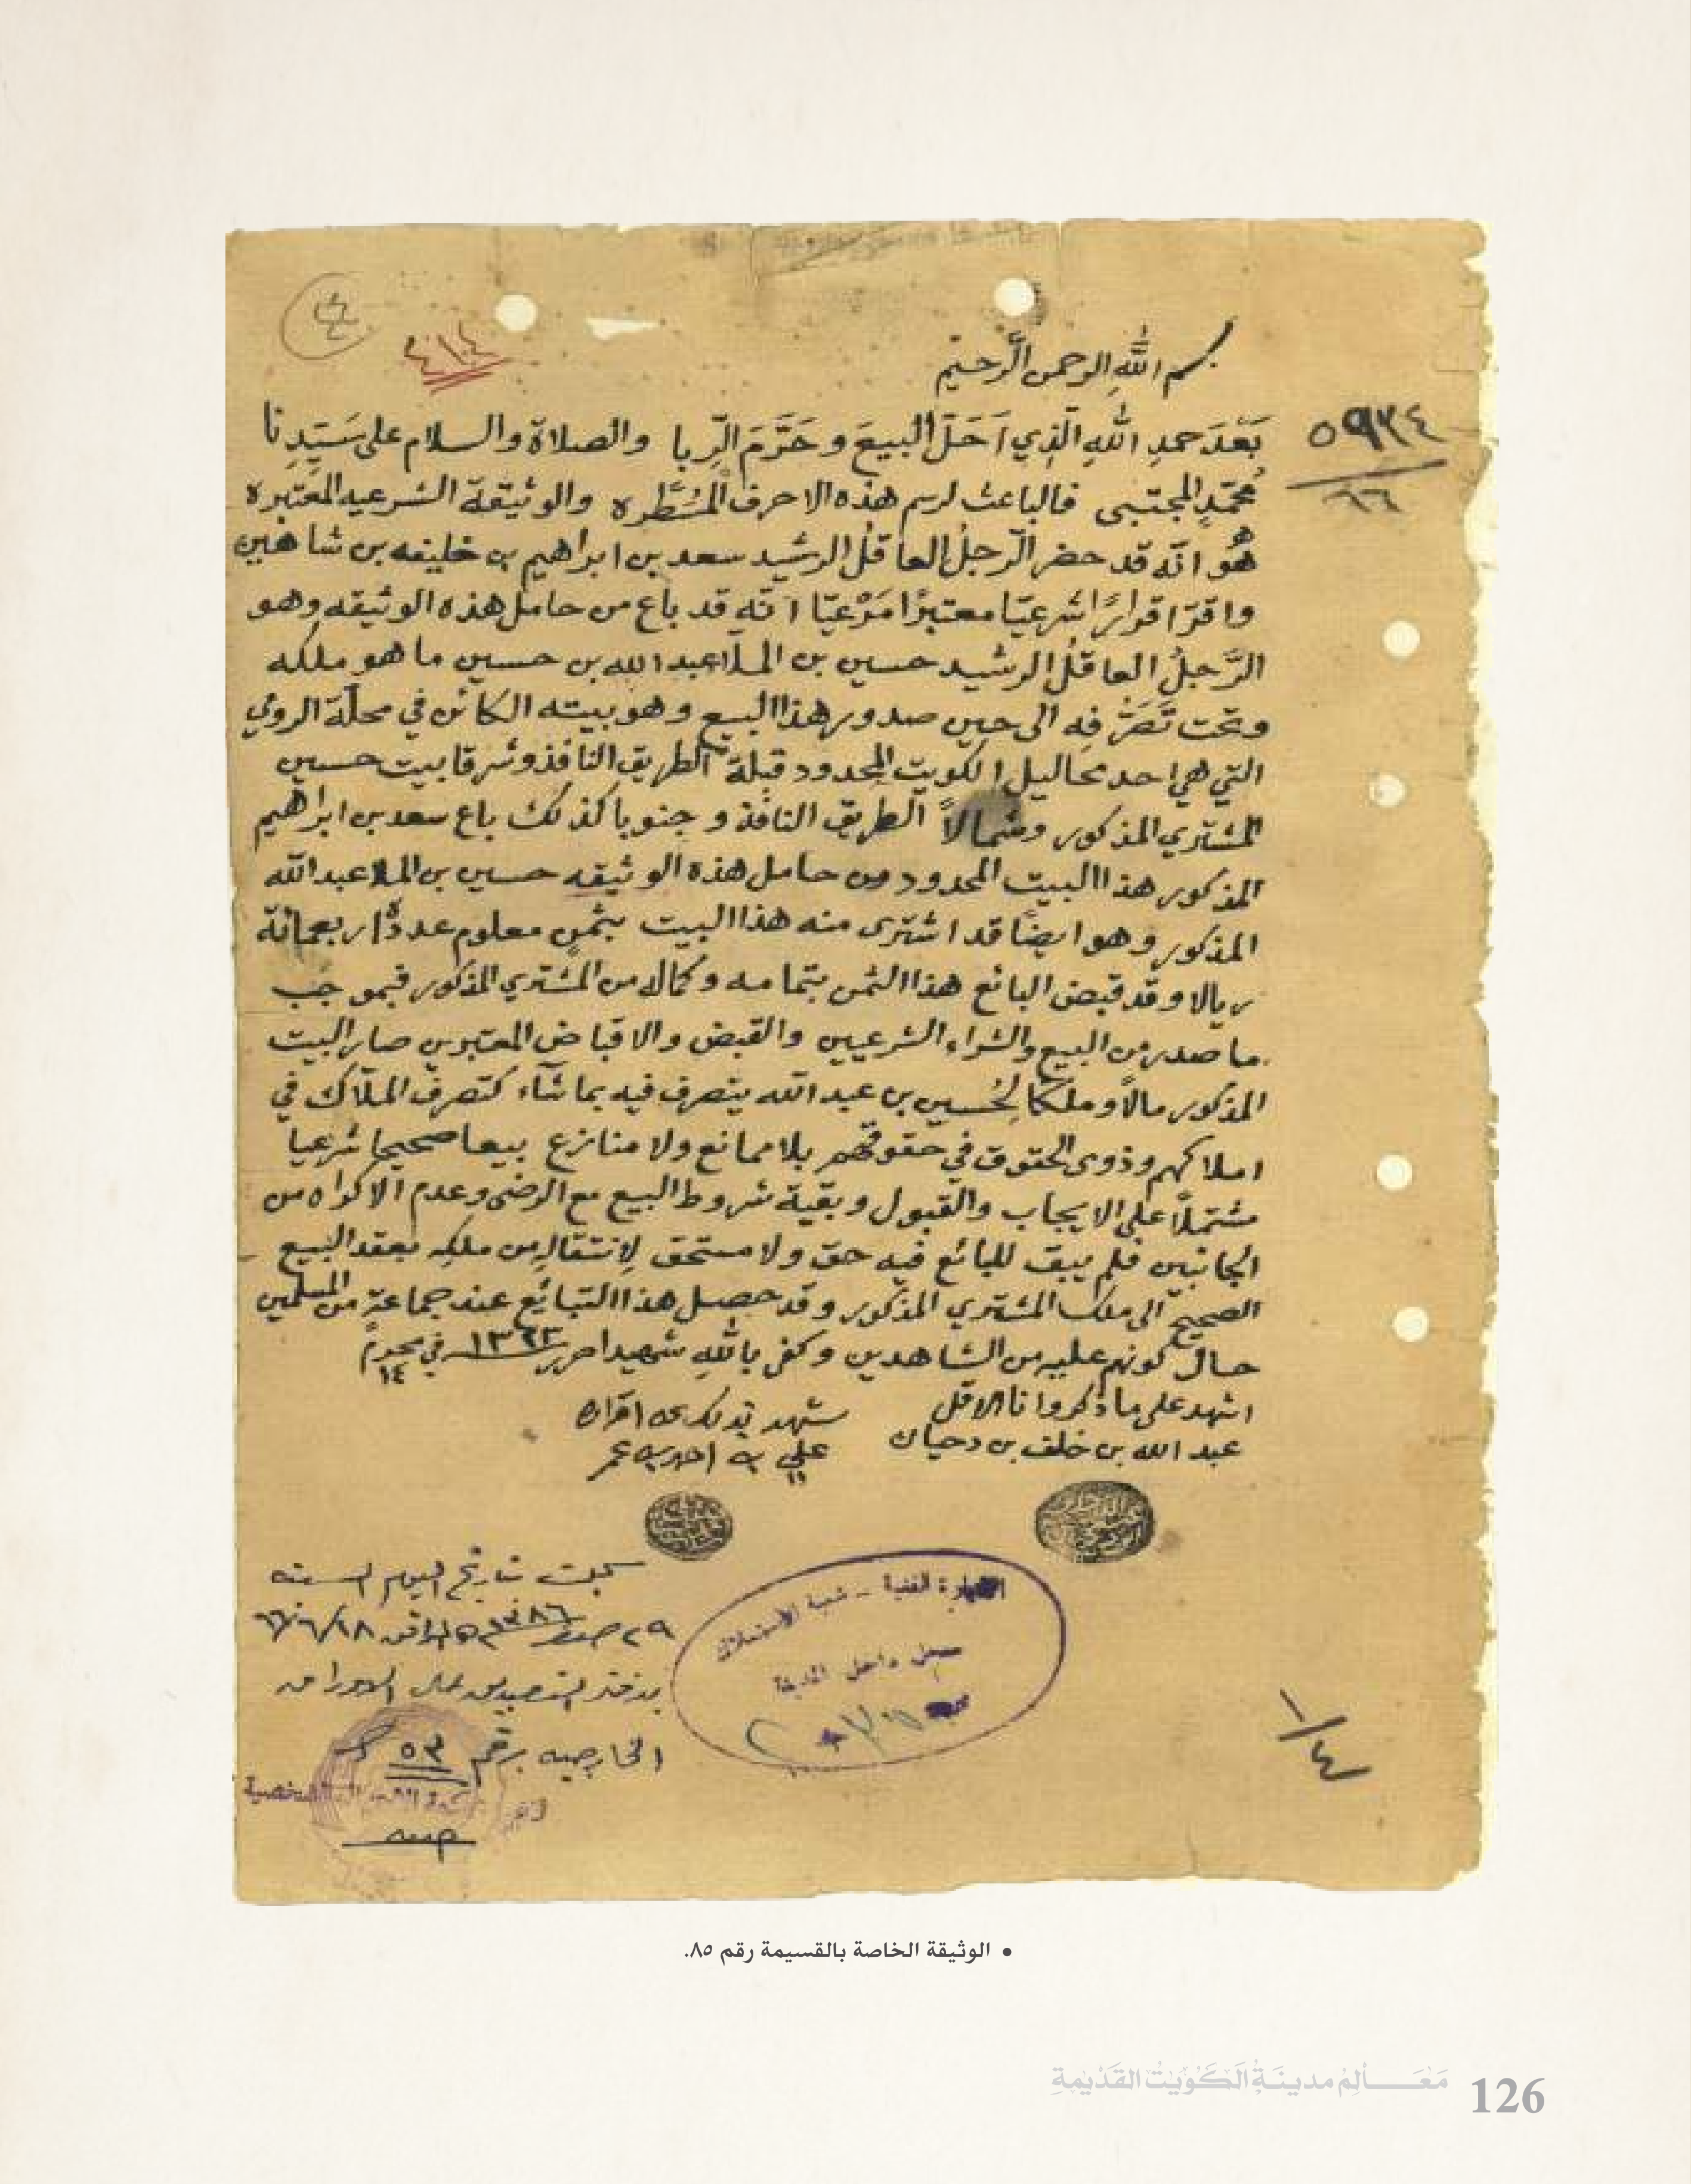 ٤١٤
بسم الله الرحمن الرَّحيم
٥٩٣٤
٦٦
بَعْدَ حمدِ اللهِ الَّذِي اَحَلَّ البيعَ وحَرَّمَ الرِّبا والصلاة والسلام على سَيِّدِنا
مُحَمَّدٍ المجتبى فالباعث لرسم هذه الاحرف المُسَطَّره والوثيقة الشرعيه المعْتبره
هُو انّه قد حضر الرّجلُ العاقلُ الرشيد سعد بن ابراهيم بن خليفه بن شاهين
واقرّ اقرارًا شرعيّا معتبرًا مَرْعيّا انّه قد باع من حامل هذه الوثيقه وهو
الرَّجلُ العاقلُ الرشيد حسين بن الملّا عبد الله بن حسين ما هو ملكه
وتحت تَصَرُّفِه الى حين صدور هذا البيع وهو بيته الكائن في محلّة الروي
التي هي احد محاليل الكويت المحدود قبلة الطريق النافذ وشرقا بيت حسين
المشتري المذكور وشمالاً الطريق النافذ وجنوبا كذلك باع سعد بن ابراهيم
المذكور هذا البيت المحدود من حامل هذه الوثيقه حسين بن الملا عبد الله
المذكور وهو ايضًا قد اشترى منه هذا البيت بثمنٍ معلوم عددُه اربعمائة
ريالا وقد قبض البائع هذا الثمن بتمامه وكماله من المشتري المذكور فبموجَب
ما صدر من البيع والشراء الشرعيين والقبض والاقباض المعتبرين صار البيت
المذكور مالاً وملكًا لِحُسين بن عبد الله يتصرف فيه بما شآء كتصرف الملّاك في
املاكهم وذوى الحقوق في حقوقهم بلا ممانع ولا منازع بيعا صحيحا شرعيا
مشتملاً على الايجاب والقبول وبقية شروط البيع مع الرضى وعدم الاكراه من
الجانبين فلم يبق للبائع فيه حق ولا مستحق لِانتقالِه من ملكِه بعقد البيع
الصحيح الى ملك المشتري المذكور وقد حصل هذا التبائع عند جماعة من المسلمين
حال كونهم عليه من الشاهدين وكفى بالله شهيدا حرر في محرم
١٤
اشهد على ما ذكر وانا الاقل
عبد الله بن خلف بن دحيان
شهد بذلك
علي بن احمد بن عمر
سجلت بتاريخ اليوم السبت
٢٩ صفر ١٣٨٦ هـ الموافق ٦٦/٦/١٨
بدفتر التصديق على الاوراق
الخارجيه برقم ٥٣
الادارة الفنية - شعبة الاستملاك
سجل داخل المدينة
١/٤
• الوثيقة الخاصة بالقسيمة رقم ٨٥.
مَعَـالِمُ مدينَةِ الكُوَيْت القَديمَةِ 126